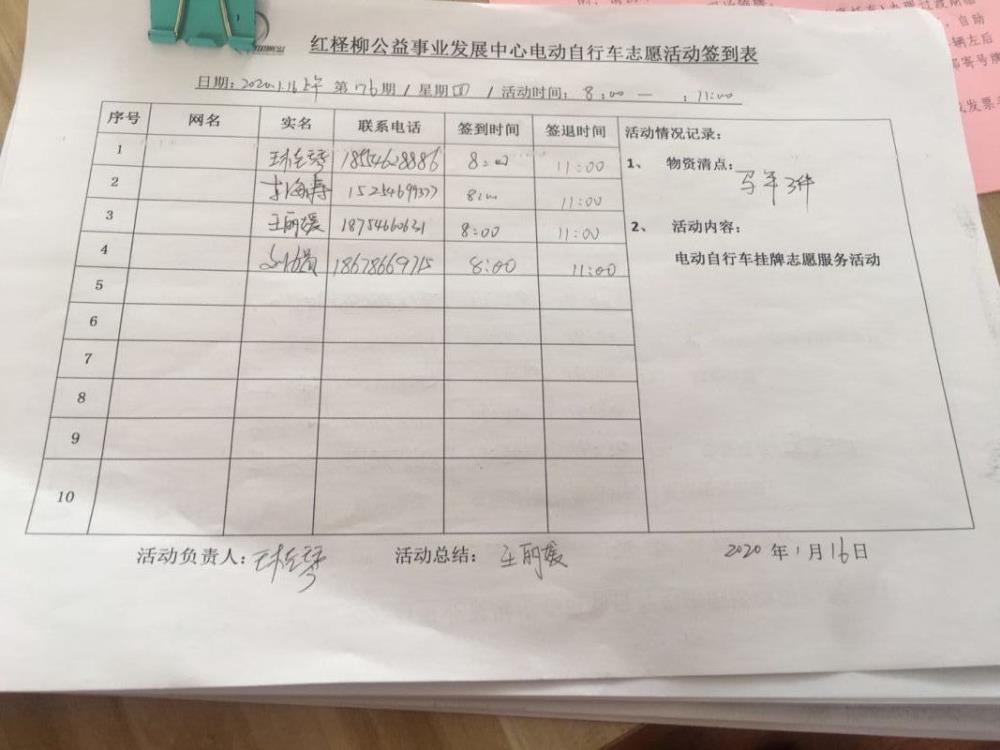 红柽柳公益事业发展中心电动自行车志愿活动签到表
日期：2020.1.16上午 第76期 / 星期四 / 活动时间：8:00 — :11:00
序号 网名 实名 联系电话 签到时间 签退时间 活动情况记录：
1 18554628886 8:00 11:00
1、 物资清点：马甲3件
2 李海寿 15254699377 8:00 11:00
3 王丽媛 18754660631 8:00 11:00
2、 活动内容：
电动自行车挂牌志愿服务活动
4 18678669715 8:00 11:00
5
6
7
8
9
10
活动负责人： 活动总结：王丽媛 2020年1月16日